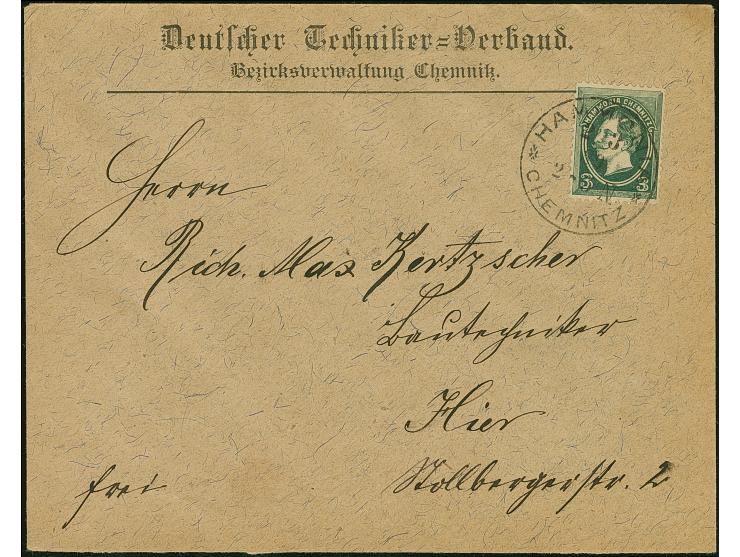 Deutscher Techniker=Verband.
Bezirksverwaltung Chemnitz.
HAMMONIA CHEMNITZ
3 3
* HAM
CHEMNITZ *
Herrn
Rich. Max Kertzscher
Bautechniker
Hier
frei
Stollbergerstr. 2